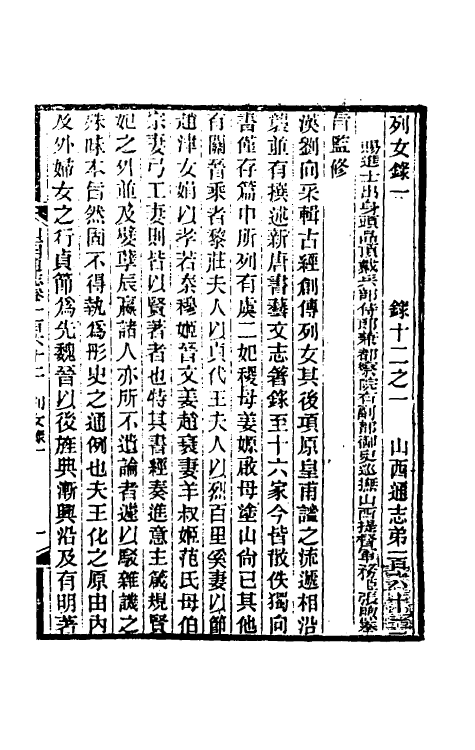 列女錄一　錄十二之一　山西通志第一百六十二
賜進士出身頭品頂戴兵部侍郎兼都察院右副都御史巡撫山西提督軍務臣張煦奉
旨監修
漢劉向采輯古經創傳列女其後項原皇甫謐之流遞相沿
襲並有撰述新唐書藝文志著錄至十六家今皆散佚獨向
書僅存篇中所列有虞二妃稷母姜嫄啟母塗山尚已其他
有關晉乘者黎莊夫人以貞代王夫人以烈百里奚妻以節
趙津女娟以孝若秦穆姬晉文姜趙衰妻羊叔姬范氏母伯
宗妻弓工妻則皆以賢著者也特其書經奏進意主箴規賢
妃之外並及孽孼辰嬴諸人亦所不遺論者遂以駁雜譏之
殊昧本旨然固不得執為彤史之通例也夫王化之原由內
及外婦女之行貞節為先魏晉以後旌典漸興沿及有明著
山西通志卷一百六十二　列女錄一　一